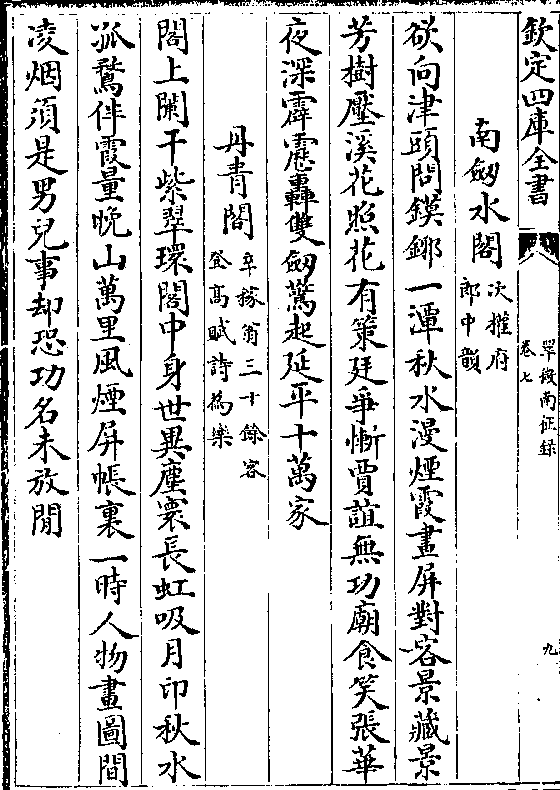 欽定四庫全書
單徼南征録
卷七
九
南劒水閣
次権府
郎中韻
欲向津頭問鏌鋣一潭秋水漫煙霞畫屏對客景藏景
芳樹壓溪花照花有策廷爭慚賈誼無功廟食笑張華
夜深霹靂轟雙劒驚起延平十萬家
丹青閣
辛稼翁三十餘客
登髙賦詩為樂
閣上闌干紫翠環閣中身世異塵寰長虹吸月印秋水
孤鶩伴霞量晚山萬里風煙屏帳裏一時人物畫圖間
凌烟須是男兒事却恐功名未放閒